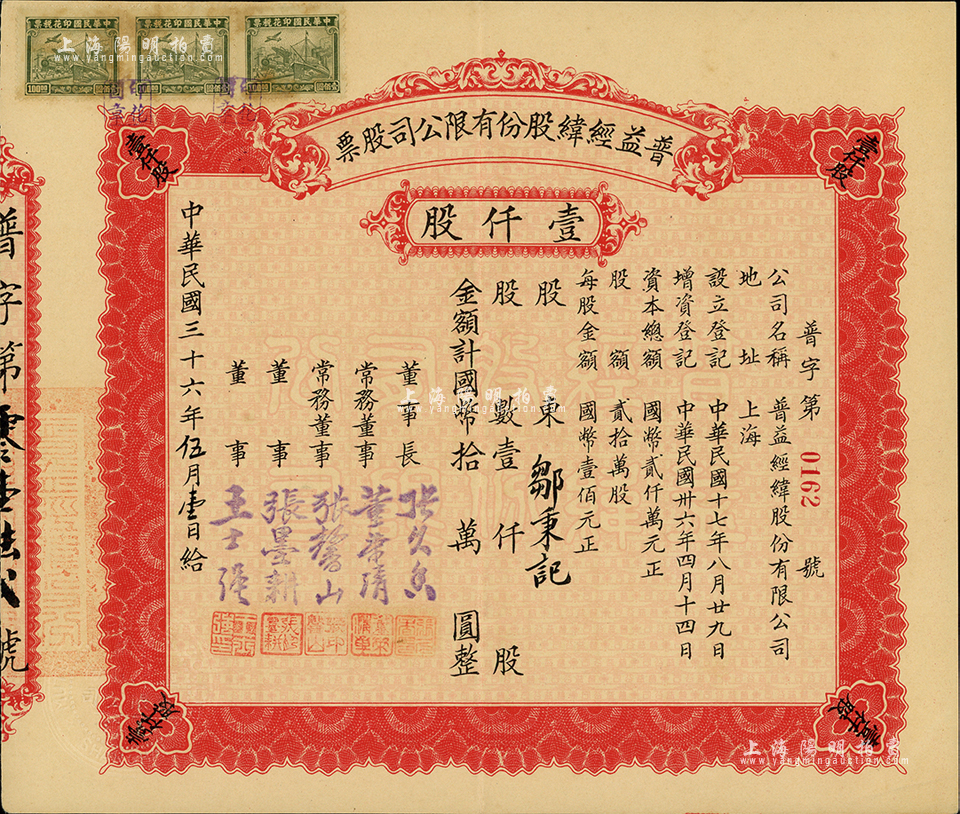 中華民國印花稅票
中華民國印花稅票
中華民國印花稅票
100圓
上海陽明拍賣
www.yangmingauction.com
普益經緯股份有限公司股票
壹仟股
壹仟股
壹仟股
普字第 0162 號
公司名稱 普益經緯股份有限公司
地址 上海
設立登記 中華民國十七年八月廿九日
增資登記 中華民國卅六年四月十四日
資本總額 國幣貳仟萬元正
股額 貳拾萬股
每股金額 國幣壹佰元正
股東 鄒秉記
股數 壹仟股
金額計國幣拾萬圓整
董事長
常務董事
常務董事
董事 張墨耕
董事 王士强
中華民國三十六年伍月壹日給
上海陽明拍賣
www.yangmingauction.com
普字第零壹陆贰號
壹仟股
壹仟股
上海陽明拍賣
www.yangmingauction.com